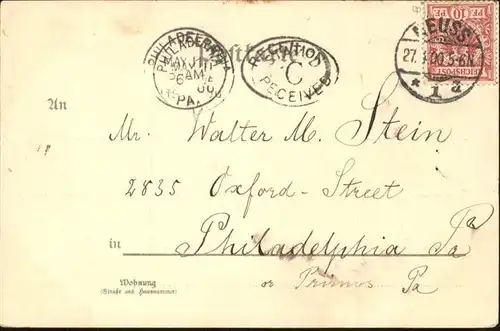 PHILADELPHIA
MAY 11
6 AM
00
PA.
C
RECEIVED
NEUSS
27. 4. 00. 5-6N.
* 1 a
REICHSPOST
10 PF
An
Mr. Walter M. Stein
2835 Oxford-Street
in Philadelphia Pa
Wohnung
(Straße und Hausnummer)
or Primos Pa